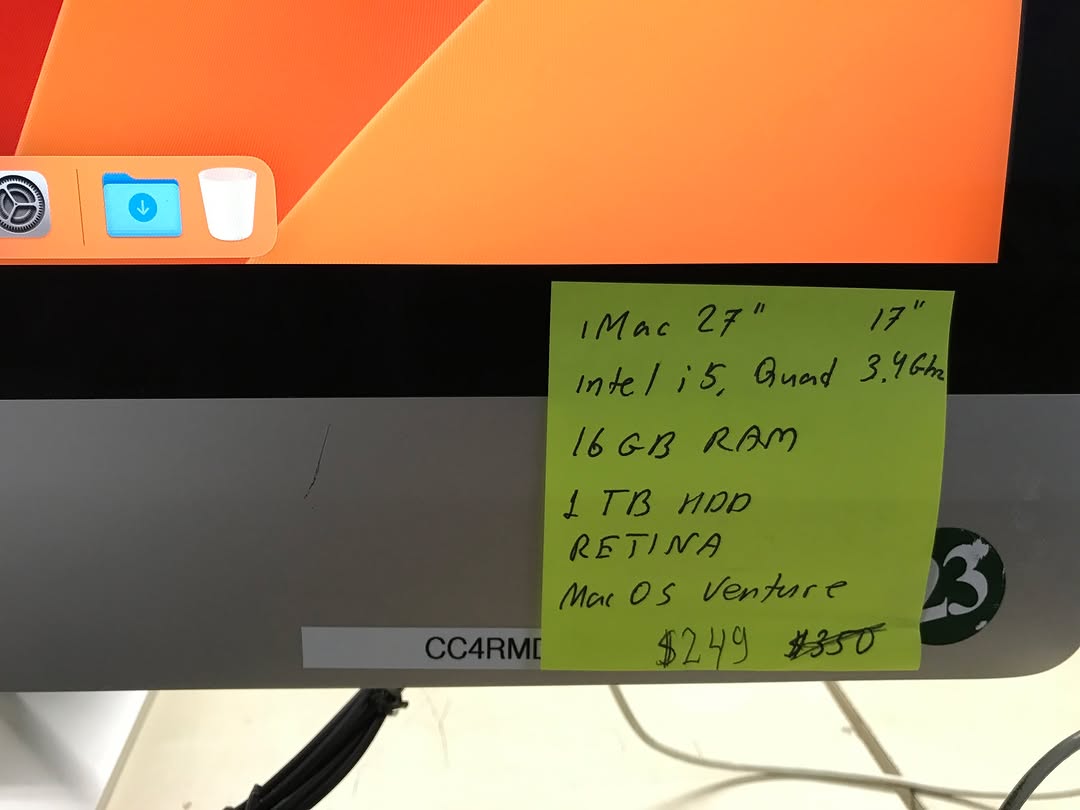 iMac 27" 17"
Intel i5, Quad 3.4Ghz
16 GB RAM
1 TB HDD
RETINA
Mac OS Venture
$249 $350
23
CC4RMD